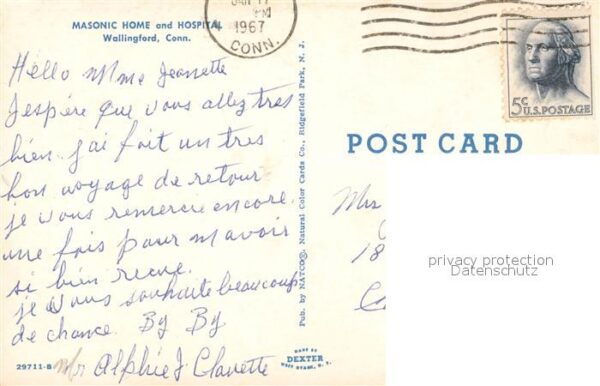 MASONIC HOME and HOSPITAL
Wallingford, Conn.
PM
1967
CONN.
5c U.S. POSTAGE
Hello Mme Jeannette
J'espère que vous allez tres
bien. j'ai fait un tres
bon voyage de retour
je vous remercie encore
une fois pour m'avoir
si bien recue.
je vous souhaite beaucoup
de chance. By By
Mr Alphie J Clavette
29711-B
Pub. by NATCO® Natural Color Cards Co., Ridgefield Park, N. J.
MADE BY
DEXTER
WEST NYACK, N. Y.
POST CARD
Mrs
18
privacy protection
Datenschutz